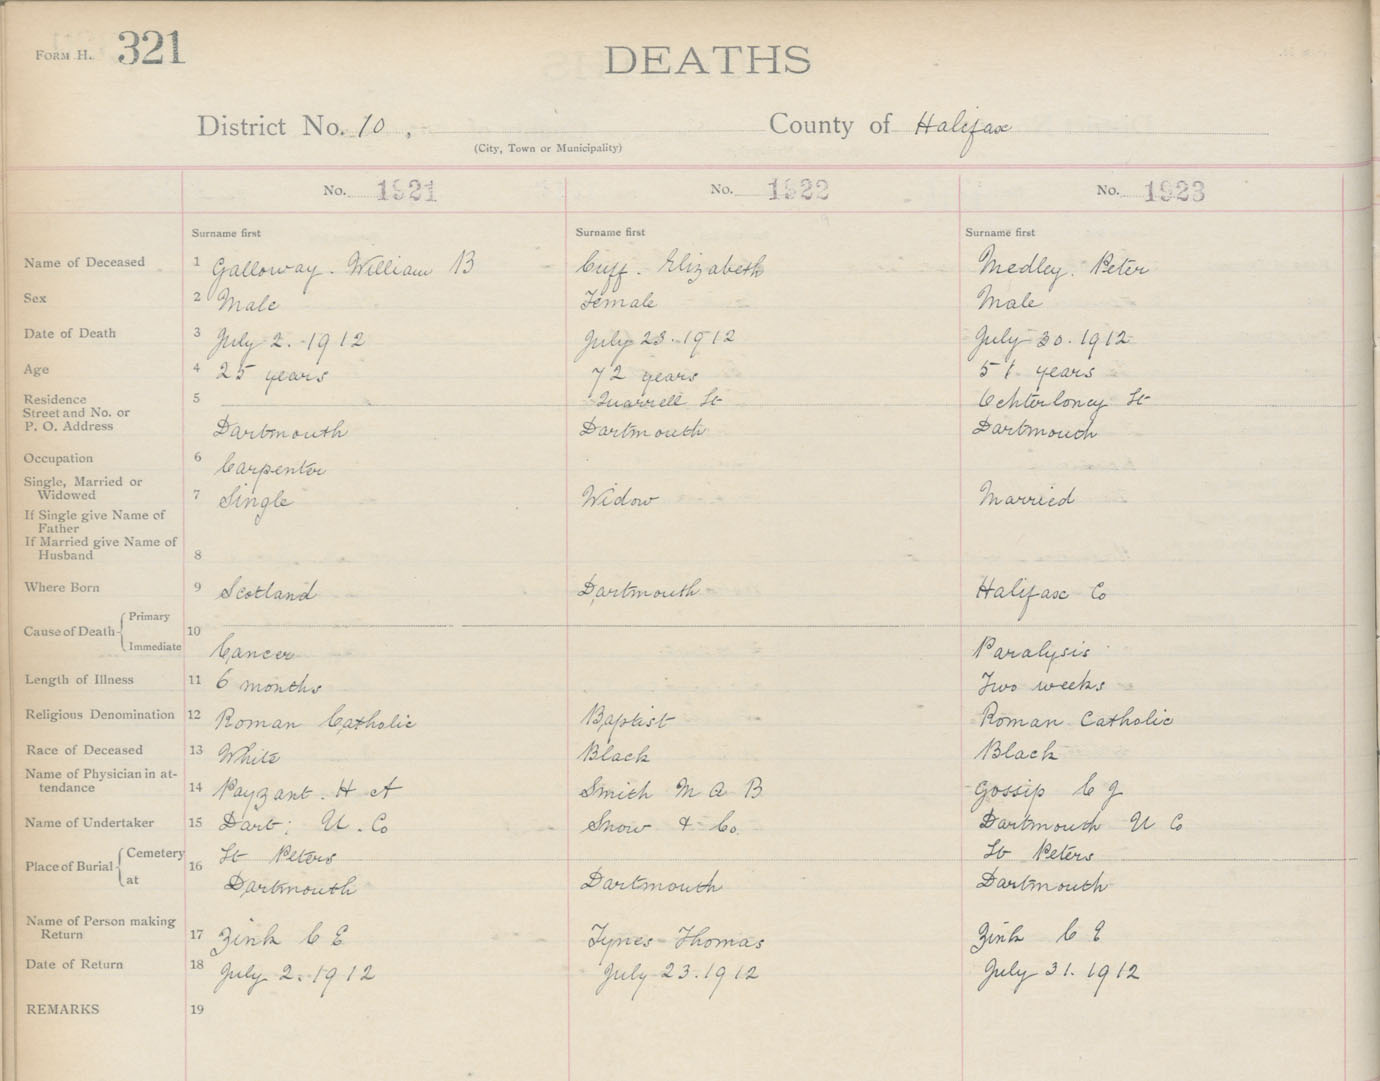 FORM H. 321
DEATHS
District No. 10, County of Halifax
(City, Town or Municipality)
No. 1921 No. 1922 No. 1923
Surname first Surname first Surname first
Name of Deceased 1 Galloway. William B Cuff. Elizabeth Medley. Peter
Sex 2 Male Female Male
Date of Death 3 July 2. 1912 July 23. 1912 July 30. 1912
Age 4 25 years 72 years 51 years
Residence 5 St Ochterloney St
Street and No. or
P. O. Address Dartmouth Dartmouth Dartmouth
Occupation 6 Carpenter
Single, Married or
Widowed 7 Single Widow Married
If Single give Name of
Father
If Married give Name of
Husband 8
Where Born 9 Scotland Dartmouth Halifax Co
Cause of Death Primary 10
Immediate Cancer Paralysis
Length of Illness 11 6 months Two weeks
Religious Denomination 12 Roman Catholic Baptist Roman Catholic
Race of Deceased 13 White Black Black
Name of Physician in at-
tendance 14 Payzant. H A Smith M A B Gossip C J
Name of Undertaker 15 Dart: U. Co Snow & Co. Dartmouth U Co
Place of Burial Cemetery 16 St Peters St Peters
at Dartmouth Dartmouth Dartmouth
Name of Person making
Return 17 Zink C E Tynes Thomas Zink C E
Date of Return 18 July 2. 1912 July 23. 1912 July 31. 1912
REMARKS 19